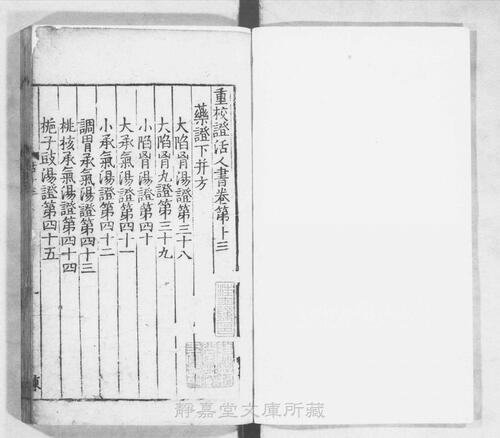 重校證活人書卷第十三
藥證下并方
大陷胷湯證第三十八
大陷胷丸證第三十九
小陷胷湯證第四十
大承氣湯證第四十一
小承氣湯證第四十二
調胃承氣湯證第四十三
桃核承氣湯證第四十四
梔子豉湯證第四十五
靜嘉堂文庫所藏